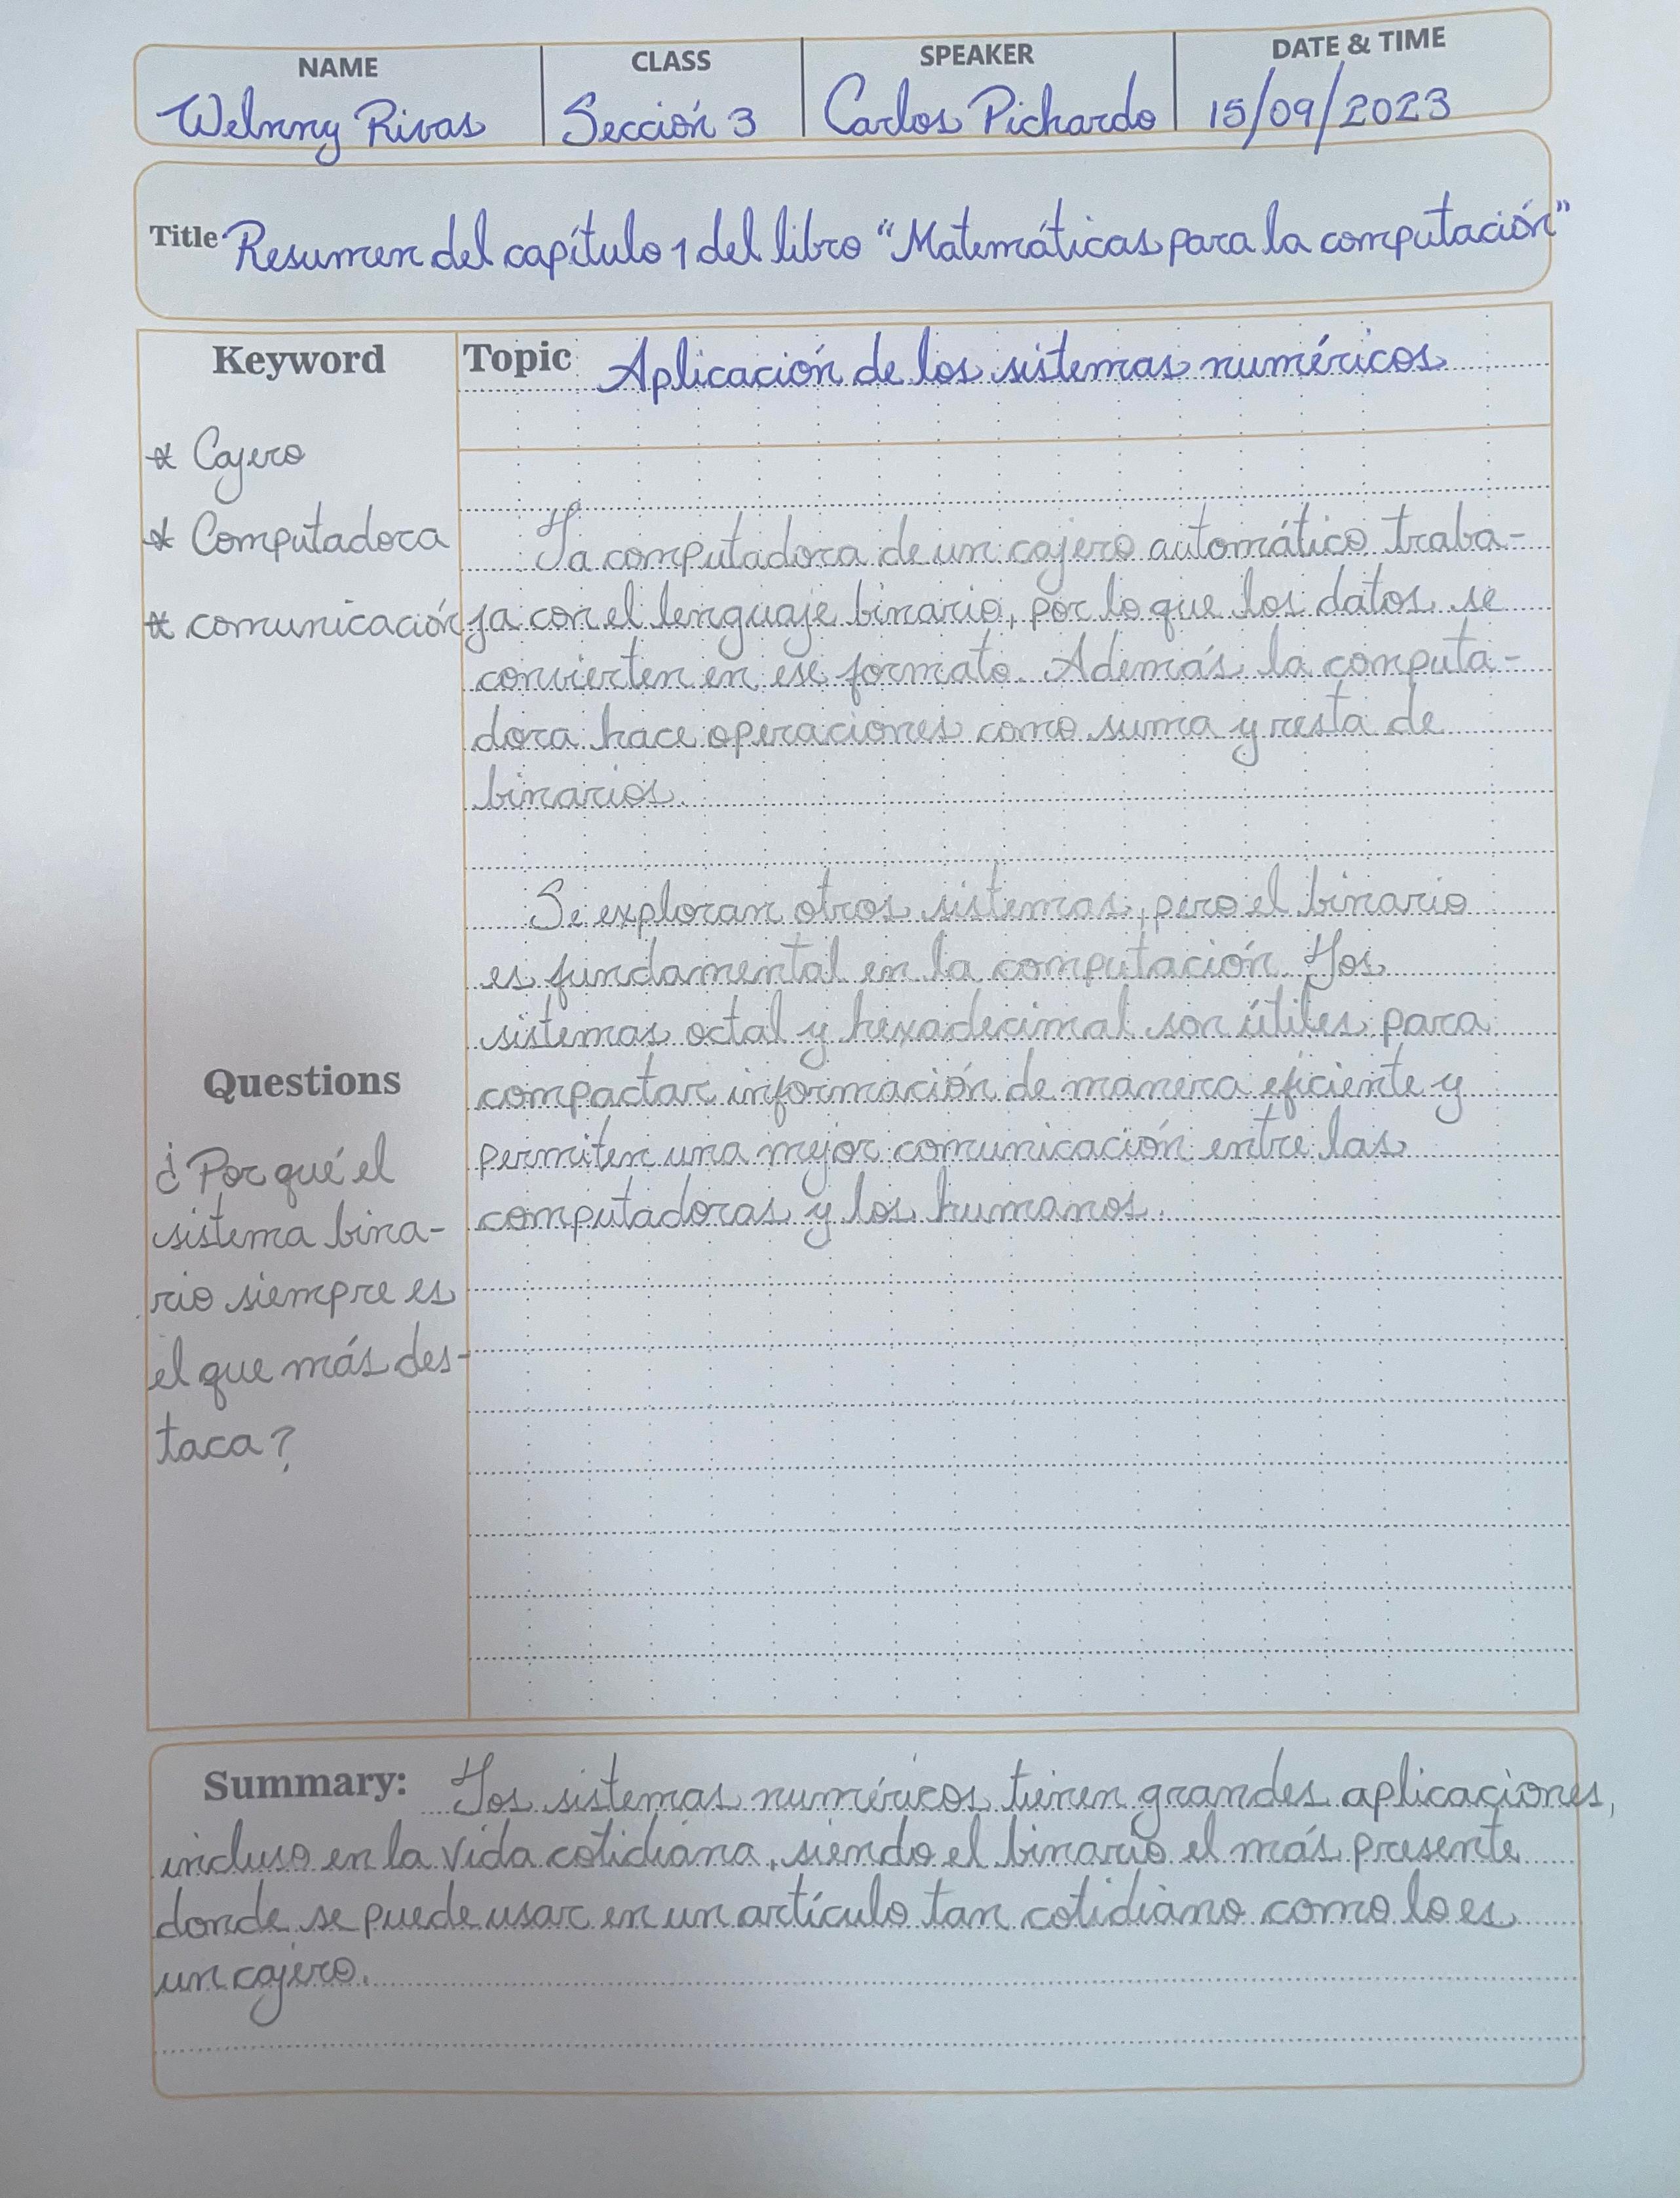 NAME CLASS SPEAKER DATE & TIME
Welnny Rivas Sección 3 Carlos Pichardo 15/09/2023
Title Resumen del capítulo 1 del libro "Matemáticas para la computación"
Keyword
* Cajero
* Computadora
* comunicación
Topic Aplicación de los sistemas numéricos
La computadora de un cajero automático traba-
ja con el lenguaje binario, por lo que los datos se
convierten en ese formato. Además la computa-
dora hace operaciones como suma y resta de
binarios.
Se exploran otros sistemas, pero el binario
es fundamental en la computación. Los
sistemas octal y hexadecimal son útiles para
compactar información de manera eficiente y
permiten una mejor comunicación entre las
computadoras y los humanos.
Questions
¿Por qué el
sistema bina-
rio siempre es
el que más des-
taca?
Summary: Los sistemas numéricos tienen grandes aplicaciones,
incluso en la vida cotidiana, siendo el binario el más presente
donde se puede usar en un artículo tan cotidiano como lo es
un cajero.